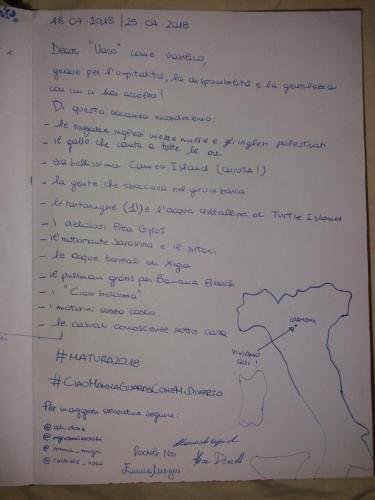 18.07.2018 | 25.07.2018
Dear "Vaso" come vasilico,
grazie per l'ospitalità, la disponibilità e la gentilezza
con cui ci hai accolto!
Di questa vacanza ricorderemo:
- le ragazze inglesi mezze nude e gli inglesi palestrati
- il gallo che canta a tutte le ore
- era bellissima Cameo Island (CHIUSA!)
- la gente che sboccava nel giro in barca
- le tartarughe (1!) e l'acqua cristallina di Turtle Island
- i deliziosi Pita Gyros
- il ristorante Sarakina e il sirtaki
- le acque termali di Xigia
- il pullman gratis per Banana Beach
- i "Ciao bellissima"
- i motorini senza casco
- le casuali conoscenze sotto casa
!
#MATURA2018
#CIAOMAMMAGUARDACOMEMIDIVERTO
Per maggiori avventure seguire:
CREMONA
VIVIAMO
QUI!